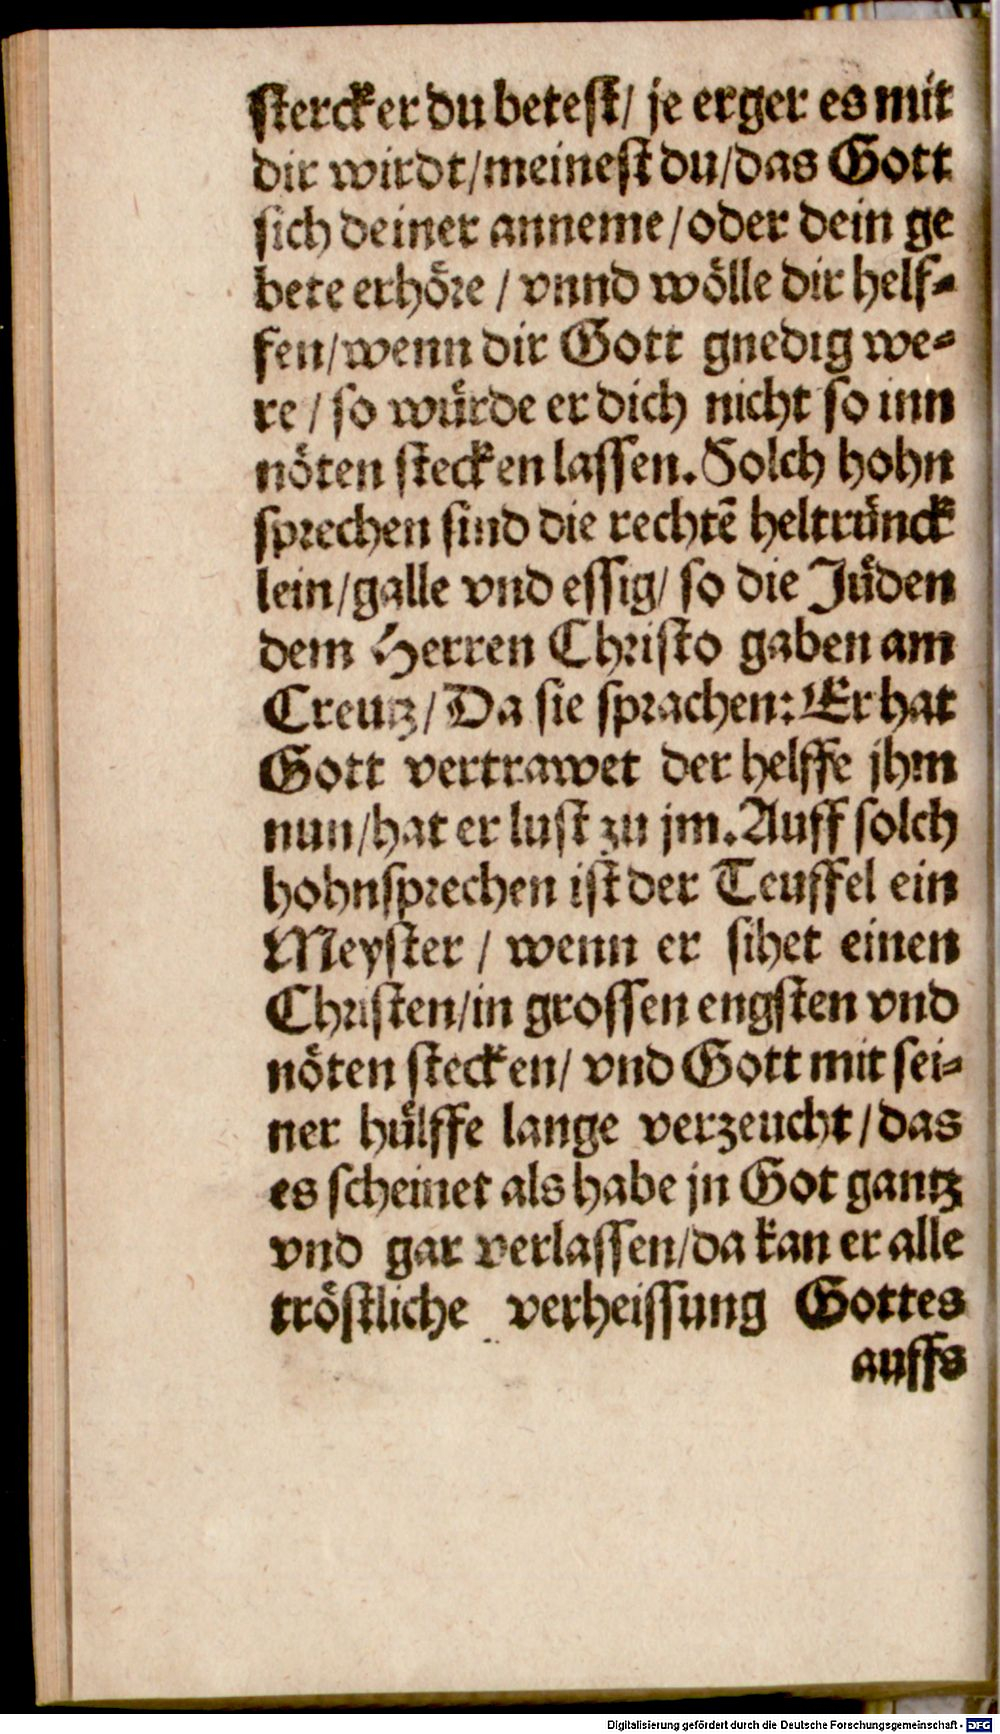 stercker du betest/ je erger es mit
dir wirdt/meinest du/das Gott
sich deiner anneme/oder dein ge
bete erhöre / vnnd wölle dir helf-
fen/wenn dir Gott gnedig we-
re / so würde er dich nicht so inn
nöten stecken lassen. Solch hohn
sprechen sind die rechtē heltrünck
lein/galle vnd essig/ so die Jüden
dem Herren Christo gaben am
Creutz/ Da sie sprachen: Er hat
Gott vertrawet der helffe jhm
nun/hat er lust zu jm. Auff solch
hohnsprechen ist der Teuffel ein
Meyster / wenn er sihet einen
Christen/in grossen engsten vnd
nöten stecken/ vnd Gott mit sei-
ner hülffe lange verzeucht/das
es scheinet als habe jn Got gantz
vnd gar verlassen/da kan er alle
tröstliche verheissung Gottes
auffs
Digitalisierung gefördert durch die Deutsche Forschungsgemeinschaft - DFG